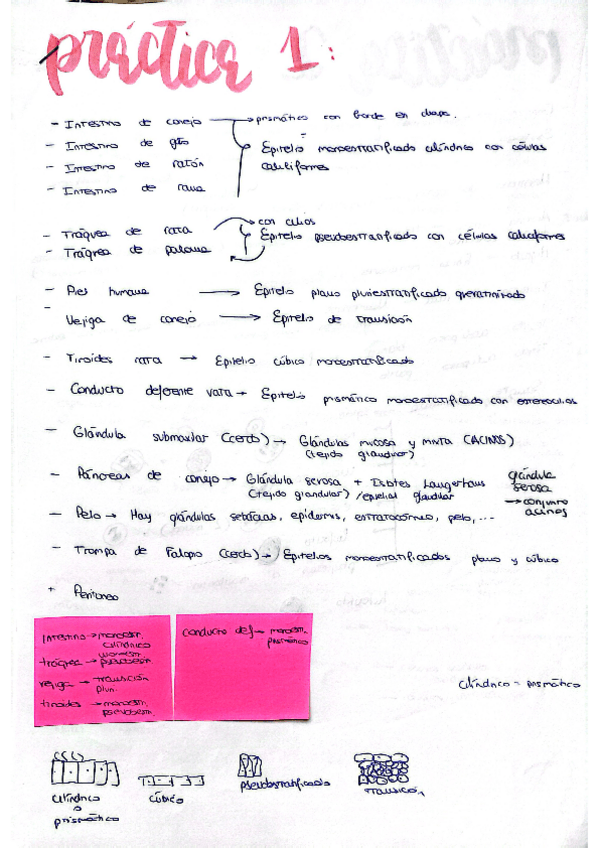 práctica 1:
- Intestino de conejo → prismático con borde en chapa.
- Intestino de gto
- Intestino de ratón
- Intestino de rana
Epitelio monoestratificado cilíndrico con células
caliciformes
- Tráquea de rata
- Tráquea de paloma
con cilios
Epitelio pseudoestratificado con células caliciformes
- Piel humana → Epitelio plano pluriestratificado queratinizado
- Vejiga de conejo → Epitelio de transición
- Tiroides rata → Epitelio cúbico monoestratificado
- Conducto deferente rata → Epitelio prismático monoestratificado con estereocilios
- Glándula submaxilar (cerdo) → Glándulas mucosa y mixta (ACINOS)
(tejido glandular)
- Páncreas de conejo → Glándula serosa + Islotes Langerhans
(tejido glandular) /epitelial glandular
glándula
serosa
→ conjunto
acinos
- Pelo → Hay glándulas sebáceas, epidermis, estrato córneo, pelo,...
- Trompa de Falopio (cerdo) → Epitelios monoestratificados plano y cúbico
+ Peritoneo
Intestino → monoestr.
cilíndrico
tráquea → pseudoestr.
vejiga → transición
pluri.
tiroides → monoestr.
pseudoestr.
conducto def → monoestr.
prismático
Cilíndrico = prismático
cilíndrico
o
prismático
cúbico
pseudoestratificado
transición